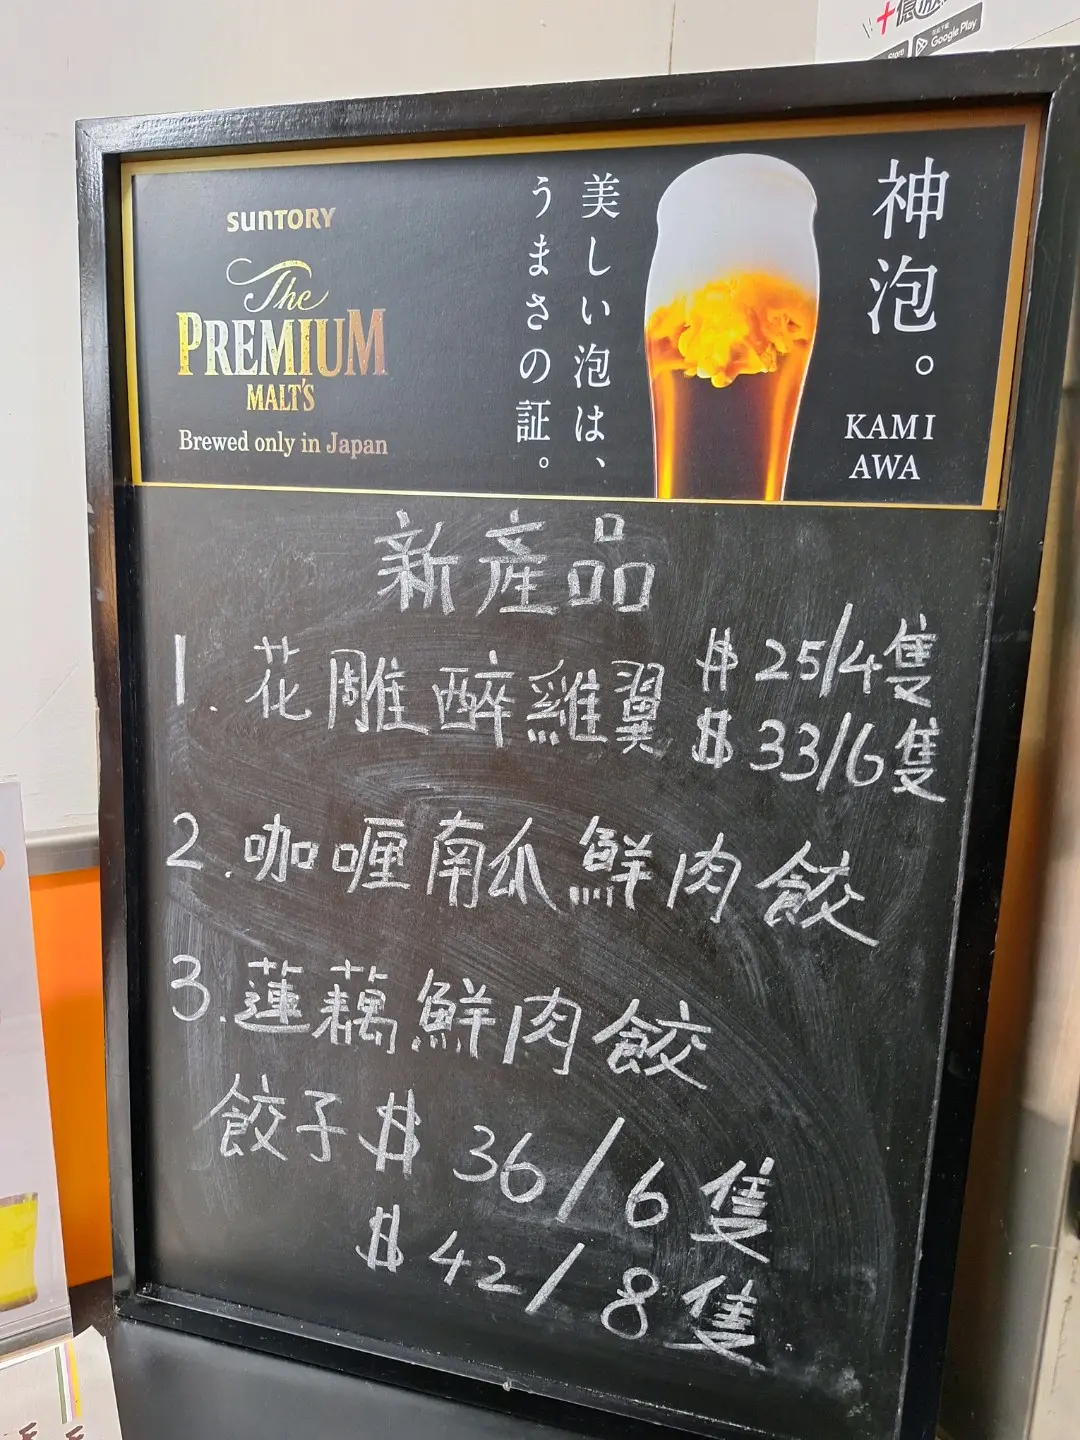 十億
Store
Google Play
SUNTORY
The
PREMIUM
MALT'S
Brewed only in Japan
美しい泡は、
うまさの証。
神泡。
KAMI
AWA
新產品
1. 花雕醉雞翼 $25/4隻
$33/6隻
2. 咖喱南瓜鮮肉餃
3. 蓮藕鮮肉餃
餃子 $36/6隻
$42/8隻